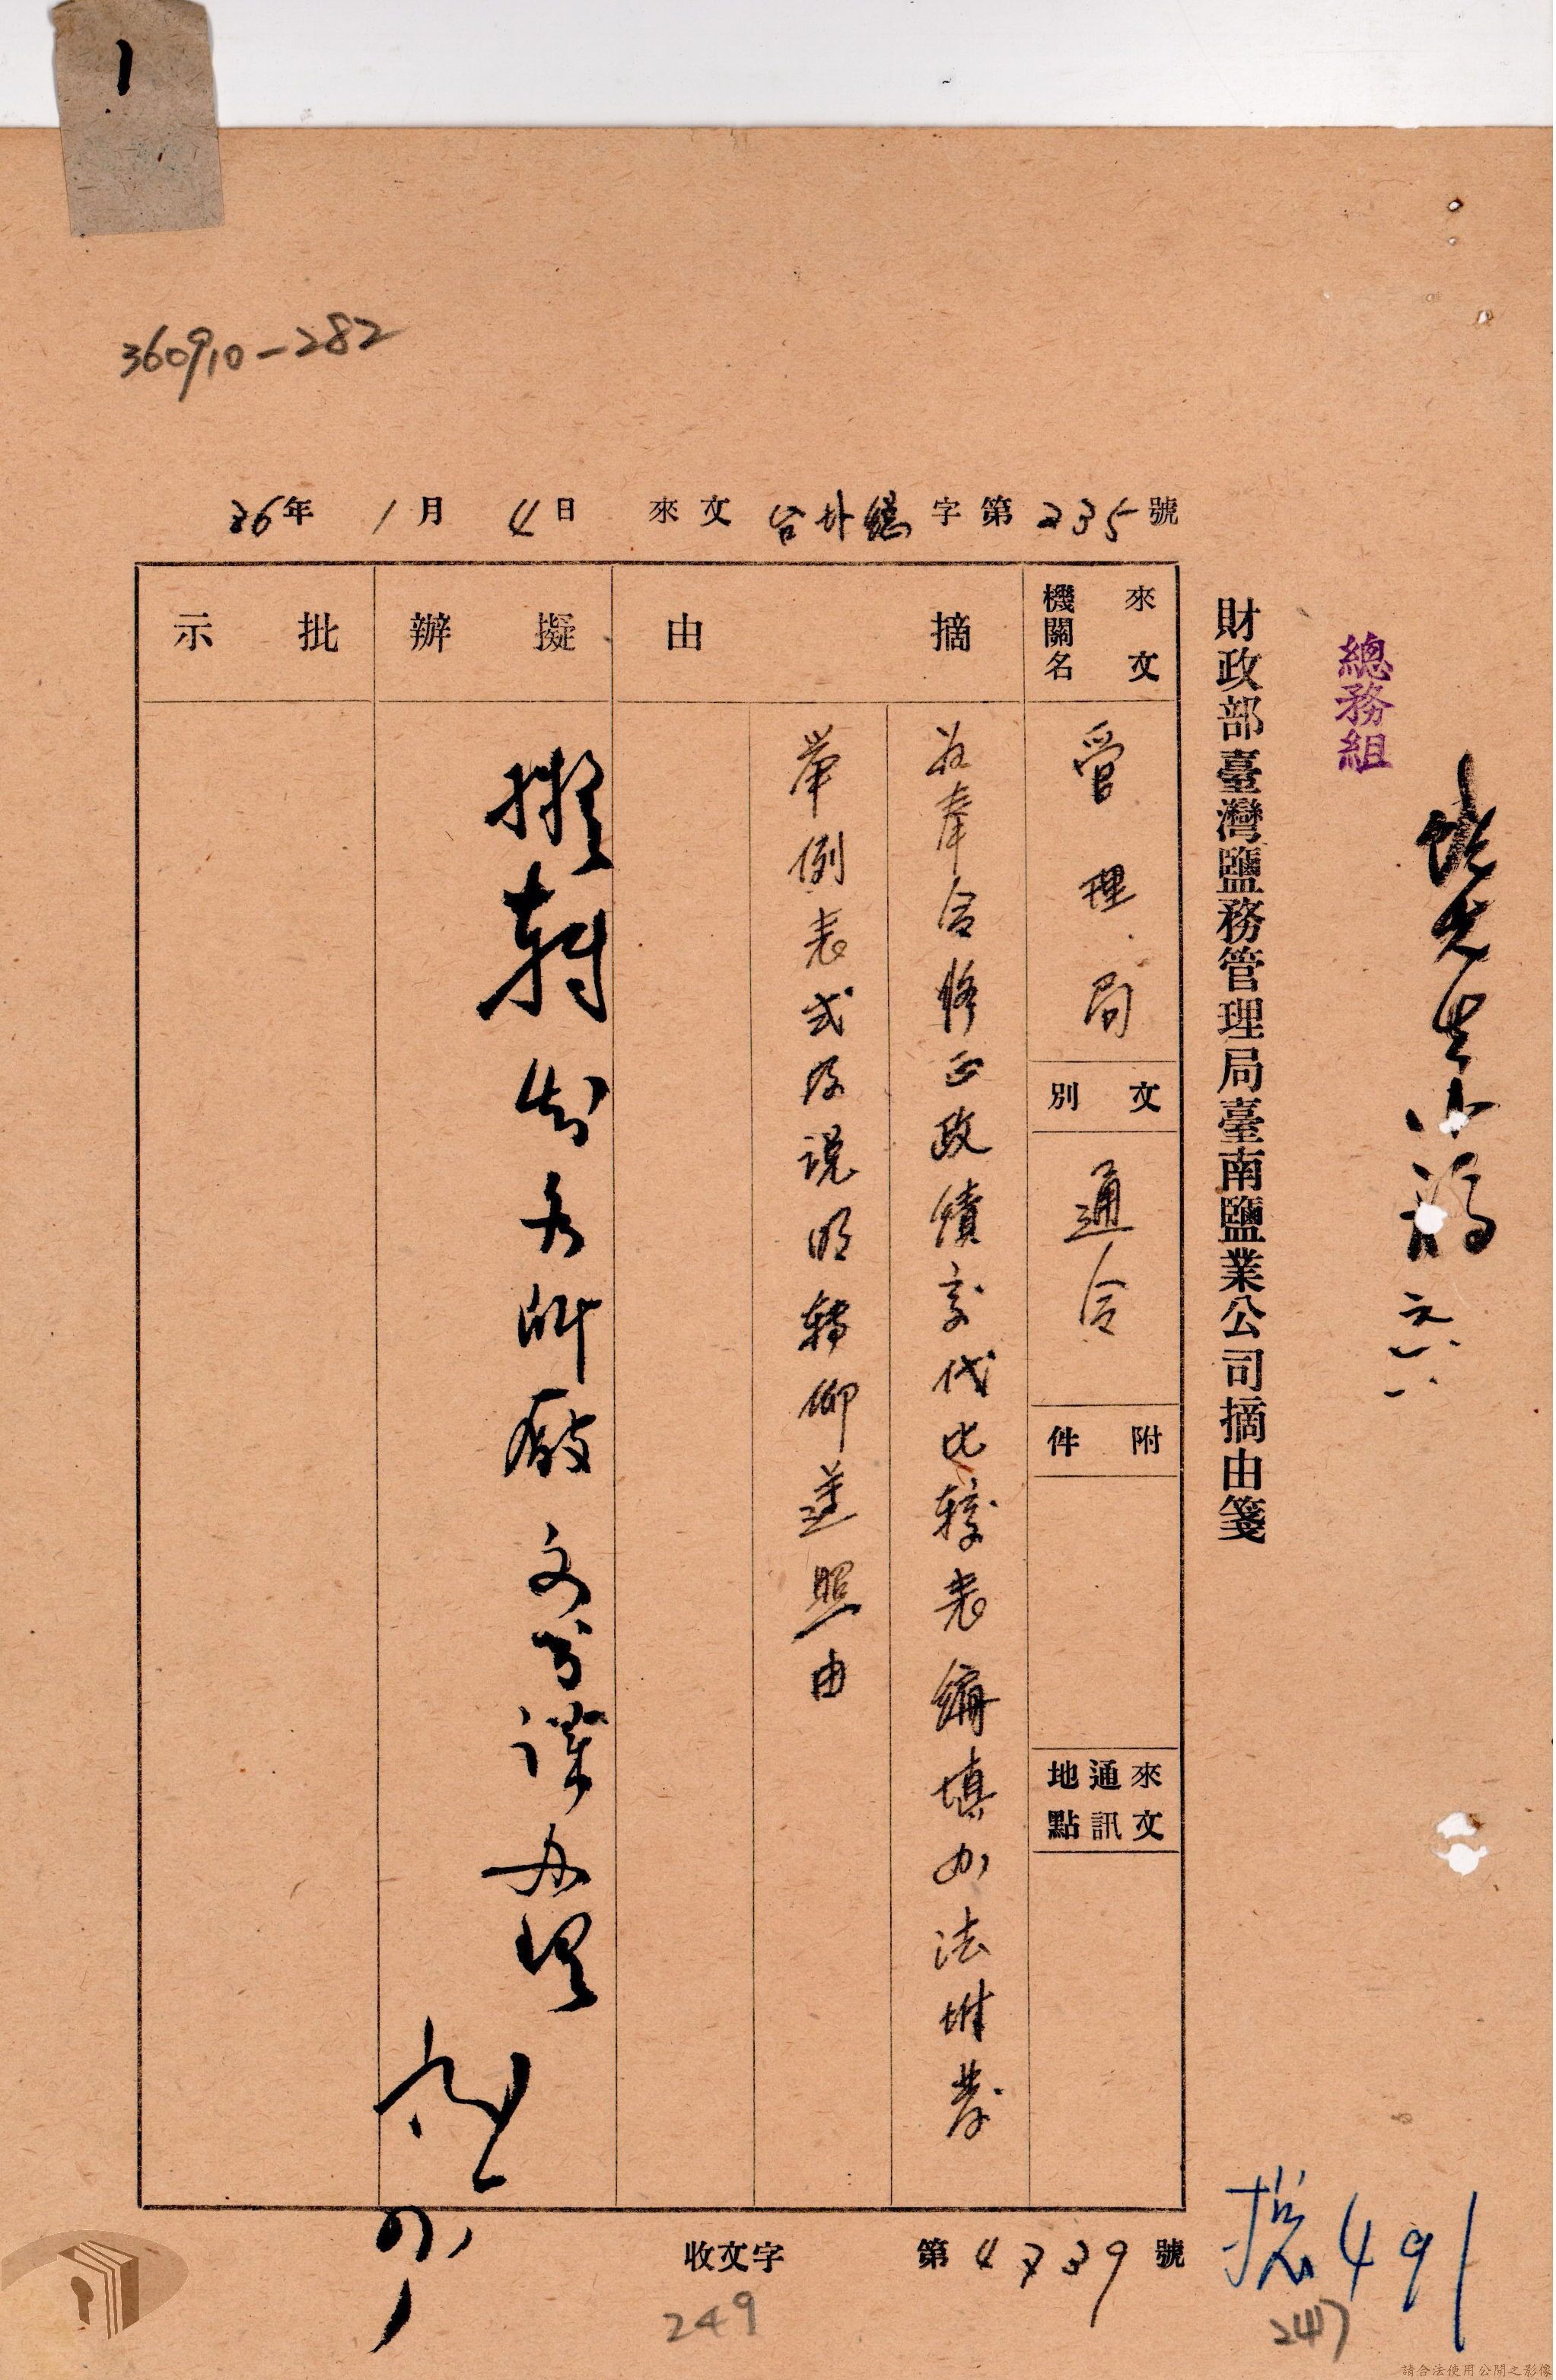 1
360910-282
總務組
財政部臺灣鹽務管理局臺南鹽業公司摘由箋
36年 1月 4日 來文 台外總字第235號
來文機關名
管理局
文別
通令
附件
來文通訊地點
摘由
為奉令修正政績交代比較表編填办法附發
舉例表式及說明轉仰遵照由
擬辦
擬轉知各所廠
办理
批示
收文字 第4739號
總491
249
247
請合法使用公開之影像